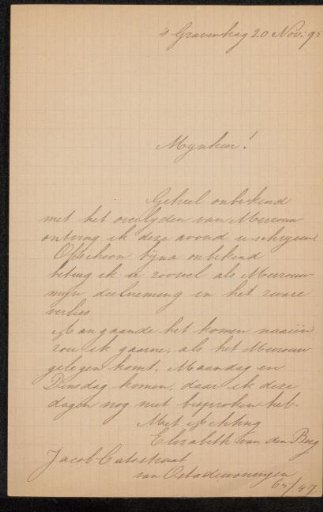 's Gravenhag 20 Nov. 9
Mynheer!
Geheel onbekend
met het overlyden van Mevrouw
ontving ik deze avond u schryven
Ofschoon byna onbekend
betuig ik u zoowel als Mevrouw
myn deelneming in het zware
verlies
Aangaande het komen naaiën
zou ik gaarne, als het Mevrouw
gelegen komt, Maandag en
Dinsdag komen, daar ik deze
dagen nog niet besproken heb.
Met Achting
Elisabeth van den Berg
Jacob Catsstraat
van Ostadewoningen